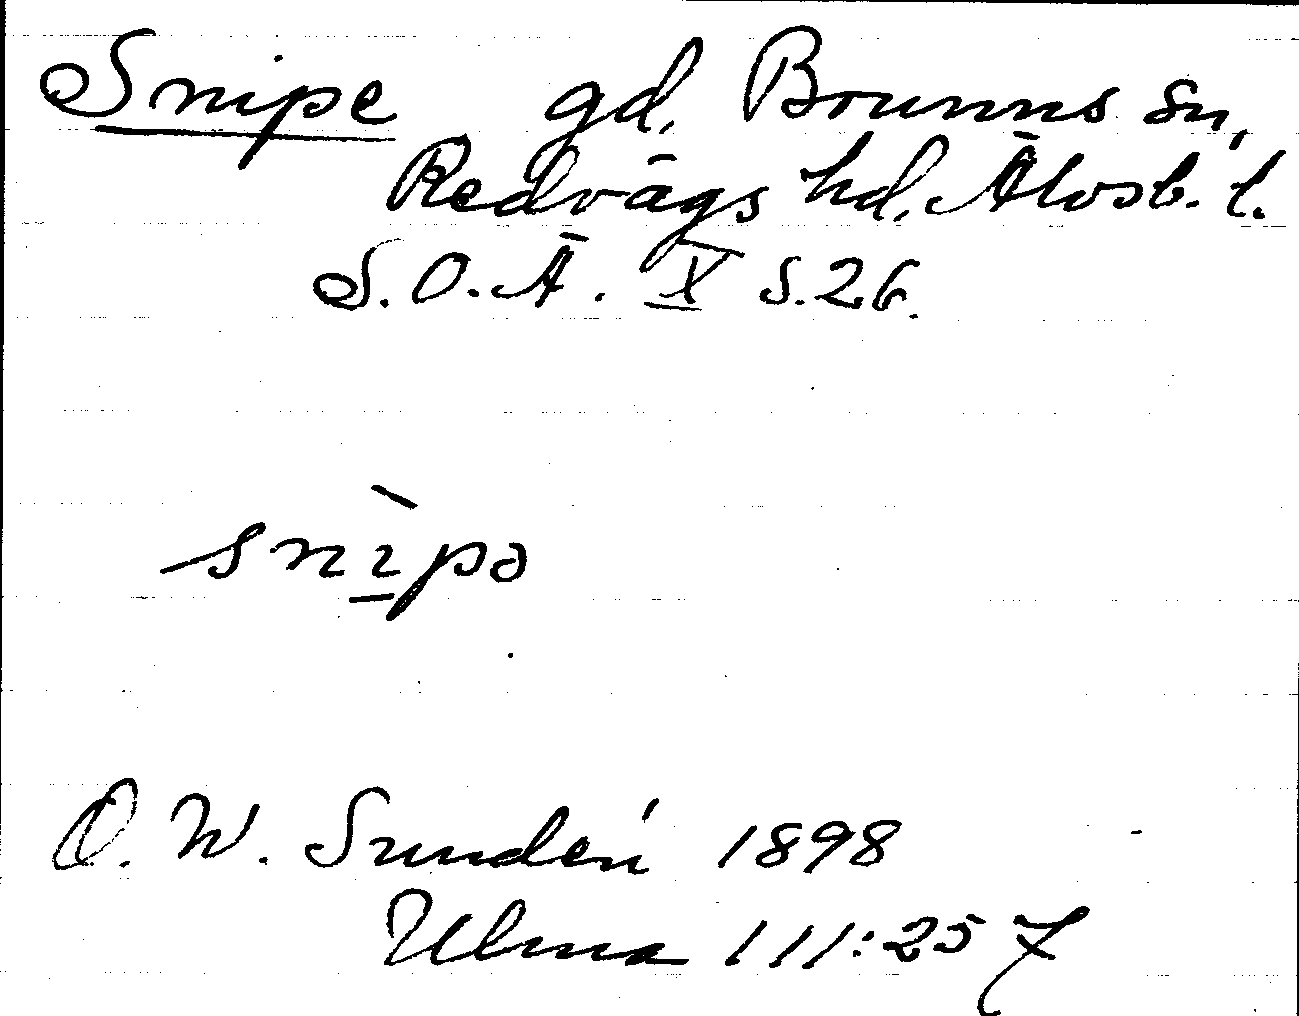 Snipe gd. Brunns sn,
Redvägs hd. Älvsb. l.
S.O.Ä. X s. 26.
snìpə
O. W. Sundén 1898
Ulma 111:257